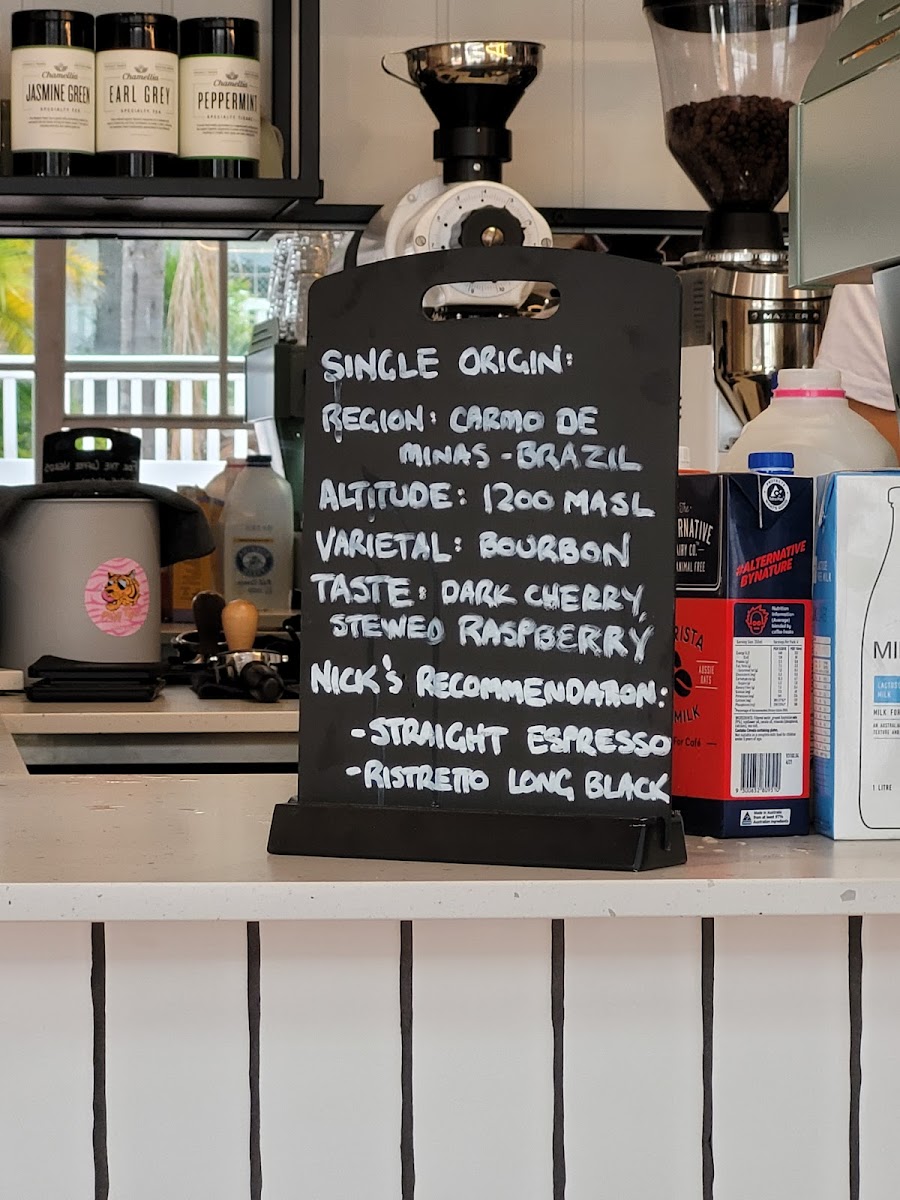 Chamellia
JASMINE GREEN
SPECIALTY TEA
Chamellia
EARL GREY
SPECIALTY TEA
Chamellia
PEPPERMINT
MAZZER
SINGLE ORIGIN:
REGION: CARMO DE
MINAS - BRAZIL
ALTITUDE: 1200 MASL
VARIETAL: BOURBON
TASTE: DARK CHERRY,
STEWED RASPBERRY
NICK'S RECOMMENDATION:
- STRAIGHT ESPRESSO
- RISTRETTO LONG BLACK
RNATIVE
IRY CO.
ANIMAL FREE
#ALTERNATIVE
BYNATURE
RISTA
AUSSIE
OATS
MILK
For Café
Nutrition
Information
(Average)
MI
MILK FOR
1 LITRE